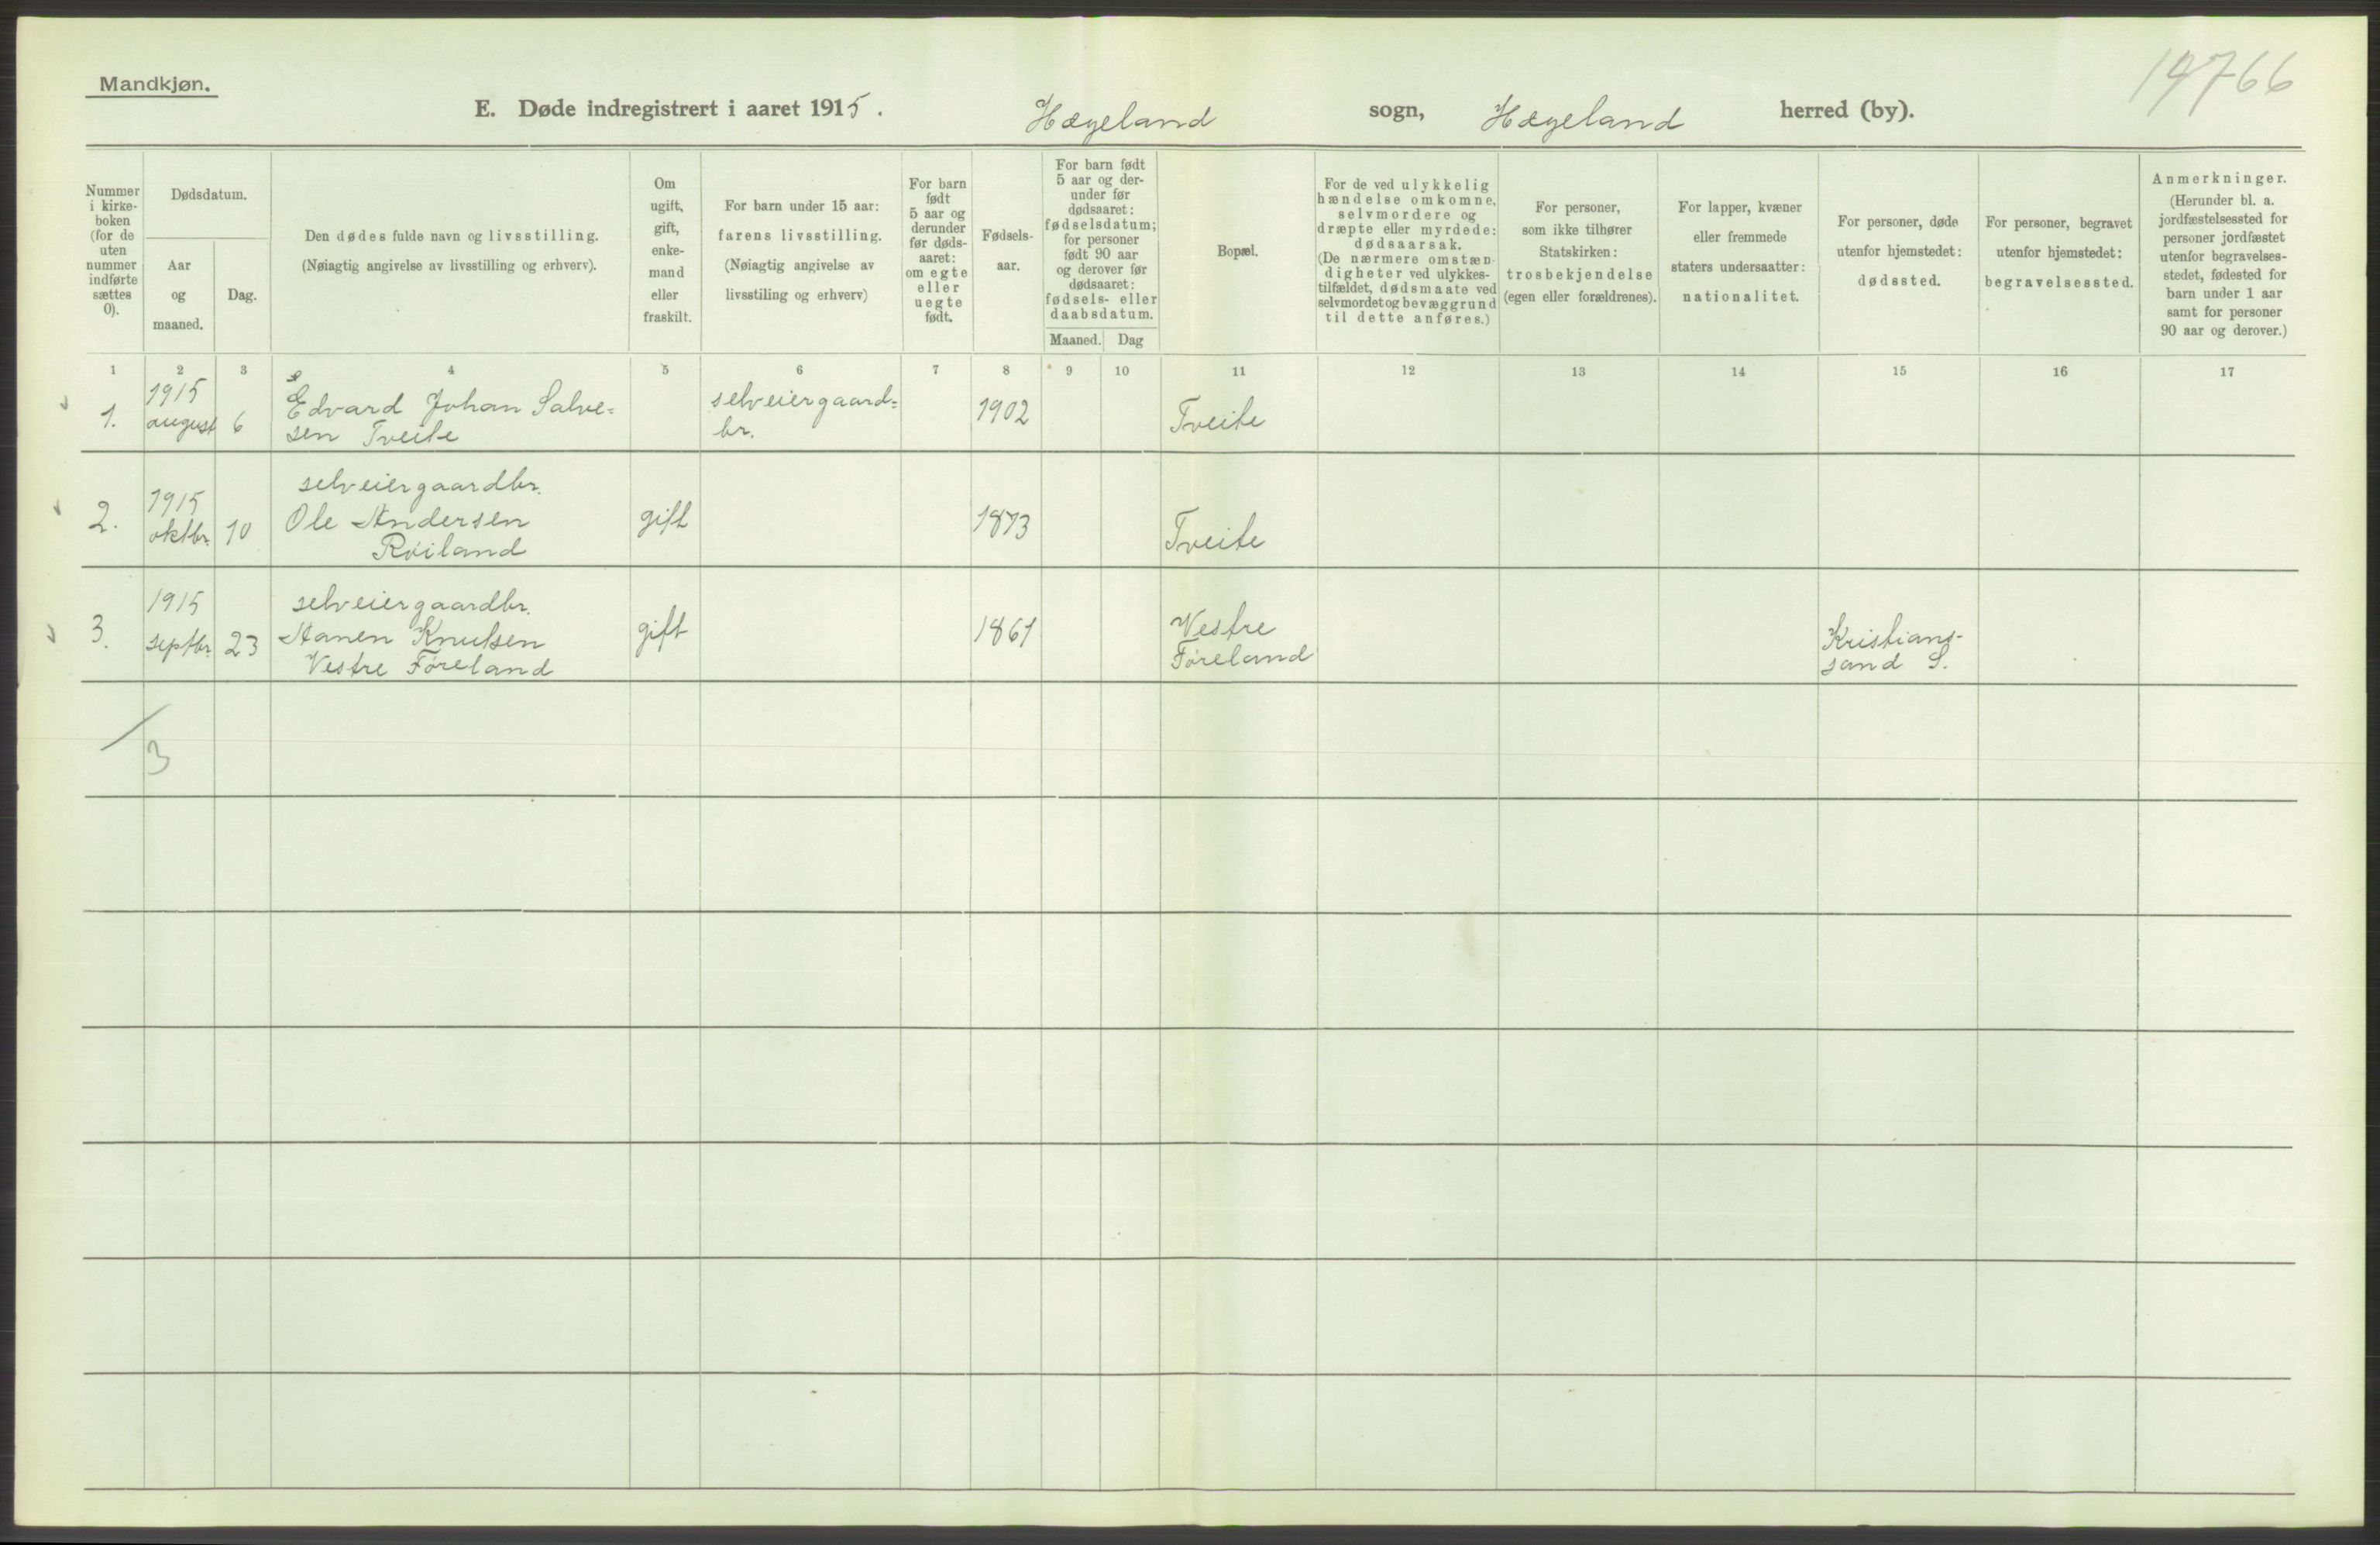 14766
Mandkjøn.
E. Døde indregistrert i aaret 1915. Hægeland sogn, Hægeland herred (by).
Nummer
i kirke-
boken
(for de
uten
nummer
indførte
sættes
0).
Dødsdatum.
Aar
og
maaned.
Dag.
Den dødes fulde navn og livsstilling.
(Nøiagtig angivelse av livsstilling og erhverv).
Om
ugift,
gift,
enke-
mand
eller
fraskilt.
For barn under 15 aar:
farens livsstilling.
(Nøiagtig angivelse av
livsstiling og erhverv)
For barn
født
5 aar og
derunder
før døds-
aaret:
om egte
eller
uegte
født.
Fødsels-
aar.
For barn født
5 aar og der-
under før
dødsaaret:
fødselsdatum;
for personer
født 90 aar
og derover før
dødsaaret:
fødsels- eller
daabsdatum.
Maaned. Dag
Bopæl.
For de ved ulykkelig
hændelse omkomne,
selvmordere og
dræpte eller myrdede:
dødsaarsak.
(De nærmere omstæn-
digheter ved ulykkes-
tilfældet, dødsmaate ved
selvmordet og bevæggrund
til dette anføres.)
For personer,
som ikke tilhører
Statskirken:
trosbekjendelse
(egen eller forældrenes).
For lapper, kvæner
eller fremmede
staters undersaatter:
nationalitet.
For personer, døde
utenfor hjemstedet:
dødssted.
For personer, begravet
utenfor hjemstedet:
begravelsessted.
Anmerkninger.
(Herunder bl. a.
jordfæstelsessted for
personer jordfæstet
utenfor begravelses-
stedet, fødested for
barn under 1 aar
samt for personer
90 aar og derover.)
1 2 3 4 5 6 7 8 9 10 11 12 13 14 15 16 17
1.
1915
august 6
Edvard Johan Salve=
sen Tveite
selveiergaard=
br.
1902
Tveite
2.
1915
oktbr. 10
selveiergaardbr.
Ole Andersen
Röiland
gift
1873
Tveite
3.
1915
septbr. 23
selveiergaardbr.
Hanen Knutsen
Vestre Föreland
gift
1861
Vestre
Föreland
Kristians-
sand S.
3